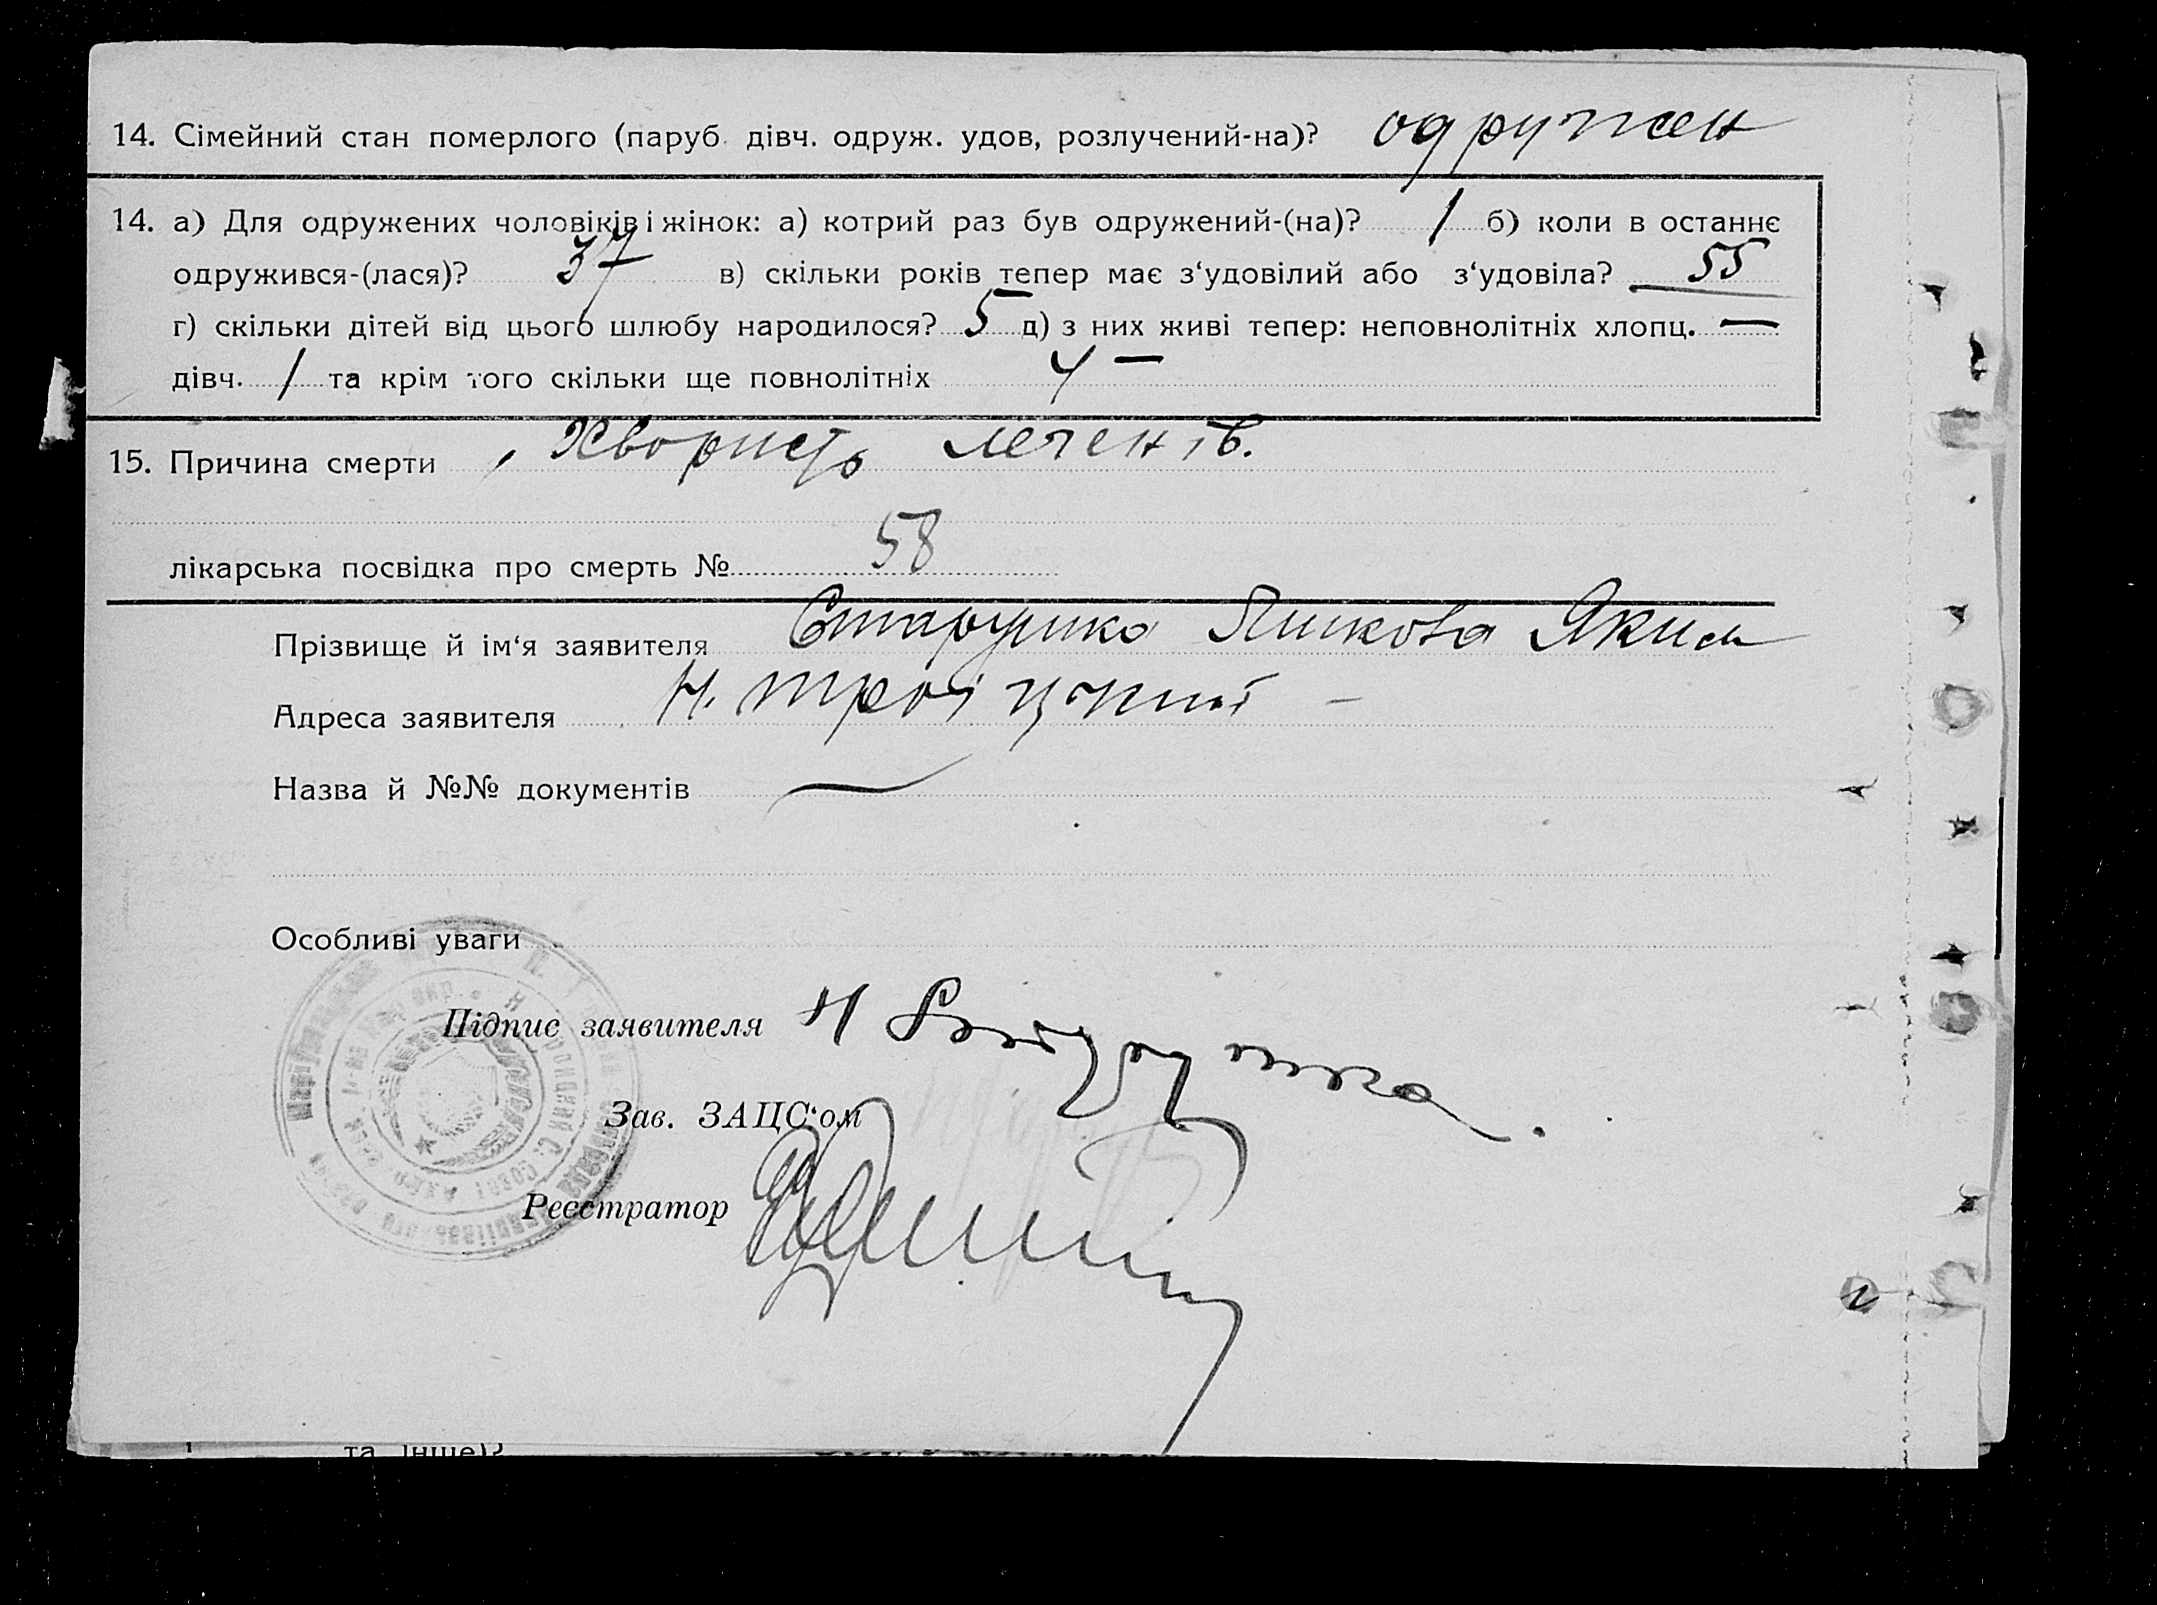 14. Сімейний стан померлого (паруб. дівч. одруж. удов, розлучений-на)? одружен
14. а) Для одружених чоловіків і жінок: а) котрий раз був одружений-(на)? 1 б) коли в останнє
одружився-(лася)? 37 в) скільки років тепер має з‘удовілий або з‘удовіла? 55
г) скільки дітей від цього шлюбу народилося? 5 д) з них живі тепер: неповнолітніх хлопц. —
дівч. 1 та крім того скільки ще повнолітніх 4 —
15. Причина смерти Хвористь легенів.
лікарська посвідка про смерть № 58
Прізвище й ім‘я заявителя Яким
Адреса заявителя Н. троіцкий —
Назва й №№ документів —
Особливі уваги
Підпис заявителя Н
Зав. ЗАЦС‘ом
Реєстратор
та інше)?